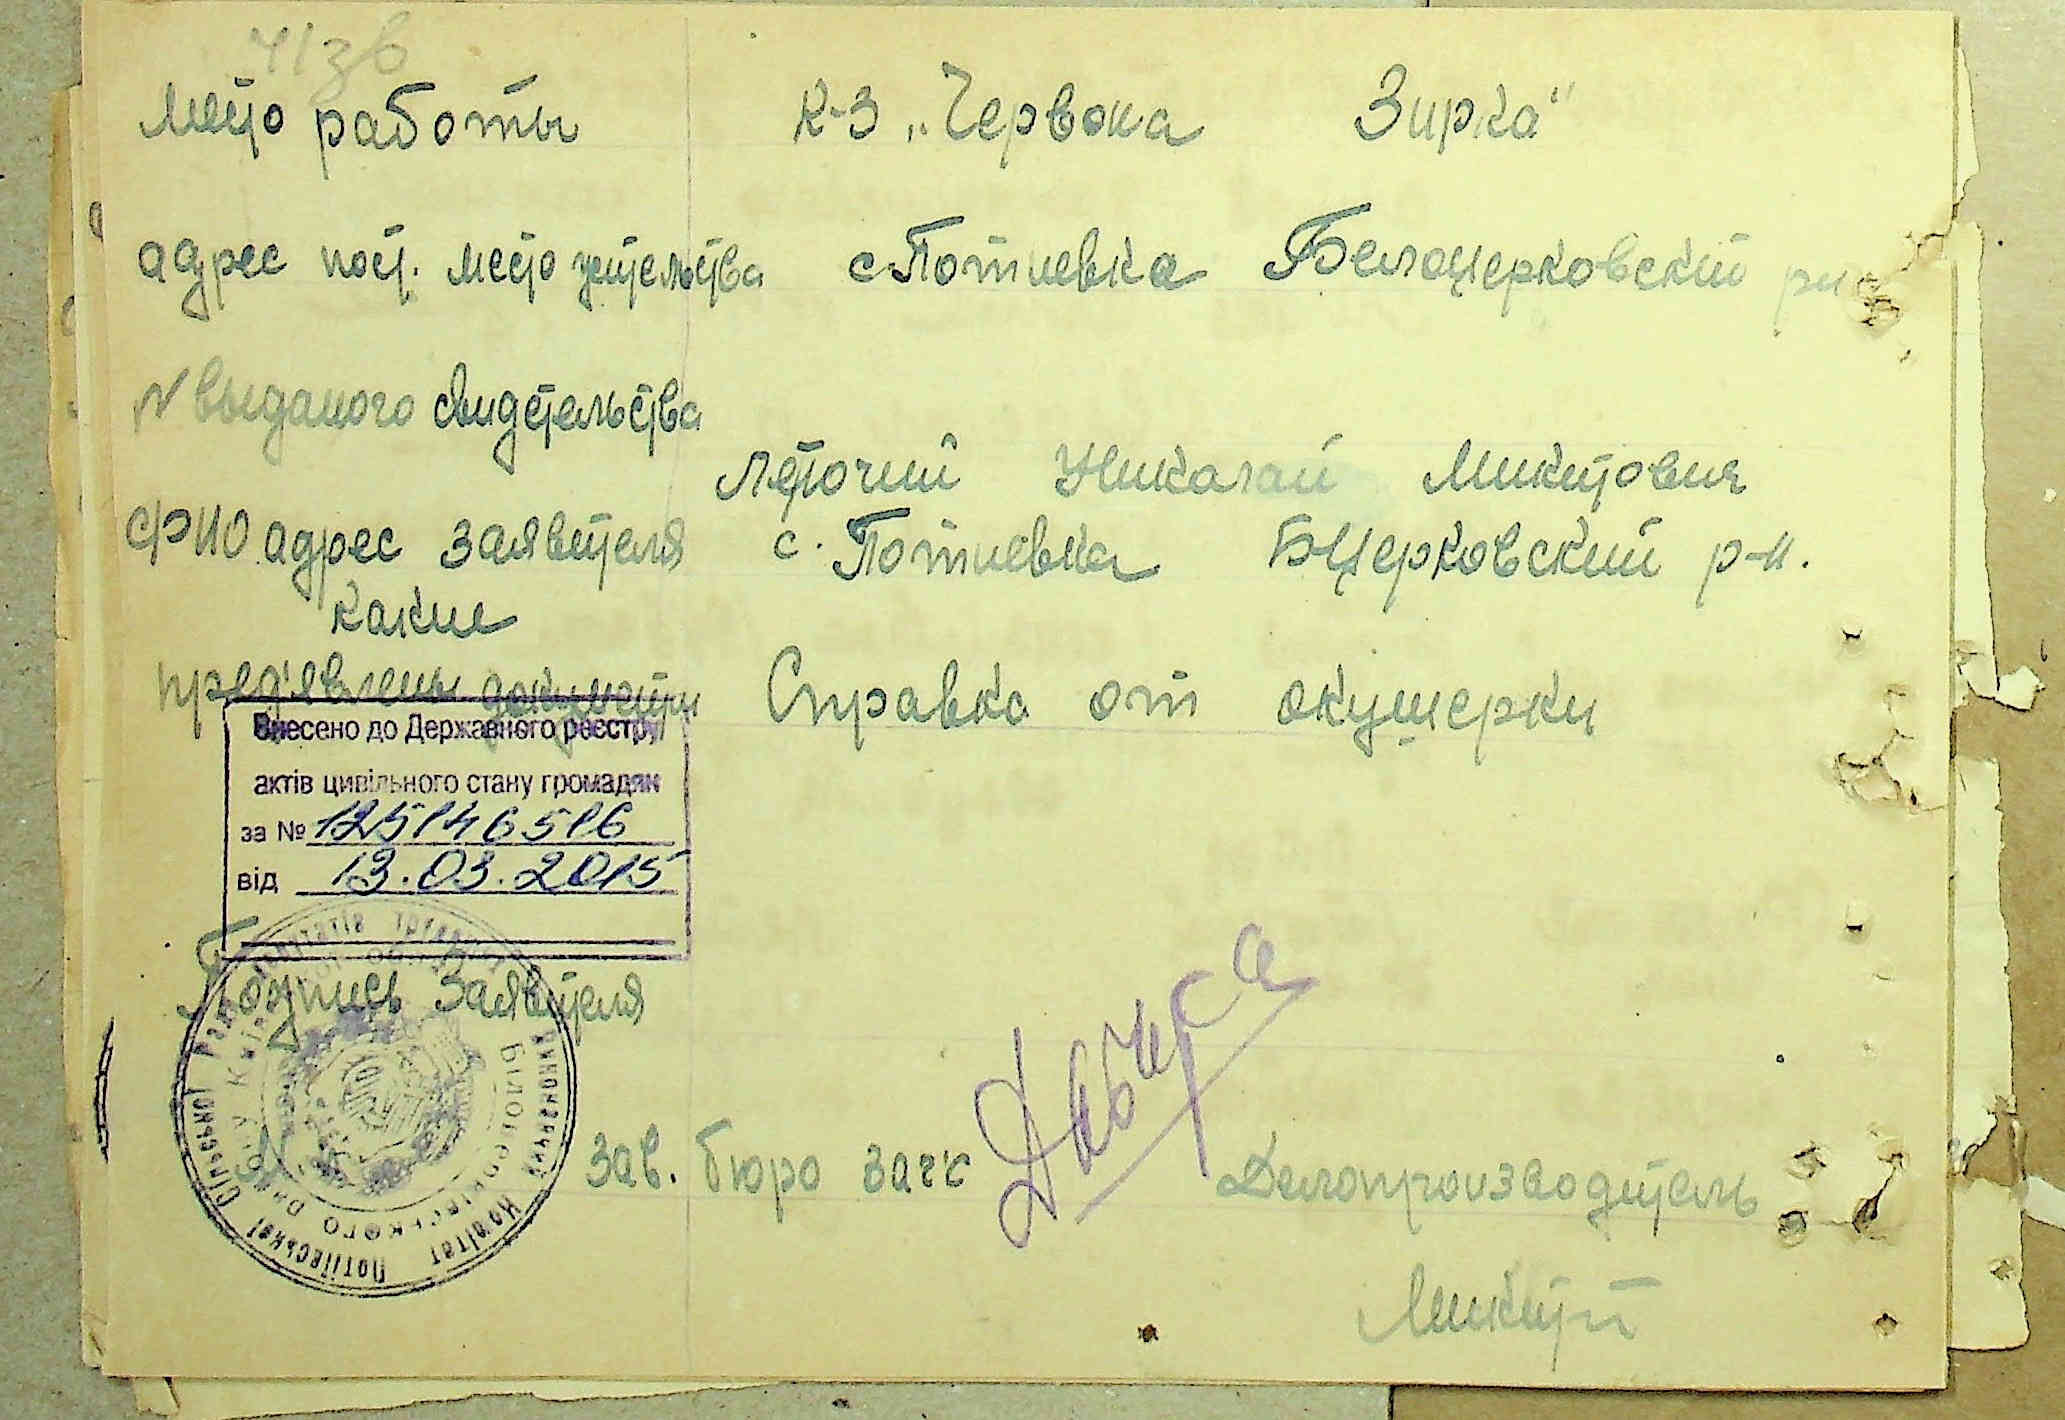 41зв
Место работы к-з „Червона Зирка"
адрес пост. место жительства с Потиевка Белоцерковский р-н
N выданого свидетельства
Леточий Николай Микитович
ФИО адрес заявителя с. Потиевка БЦерковский р-н.
какие
пред'явлены документы Справка от акушерки
Внесено до Державного реєстру
актів цивільного стану громадян
за № 125146516
від 13.03.2015
Подпись Заявителя
Виконавчий Комітет Потіївської Сільської Ради депутатів трудящих
Білоцерківського району Київської області
Зав. бюро загс Делопроизводитель